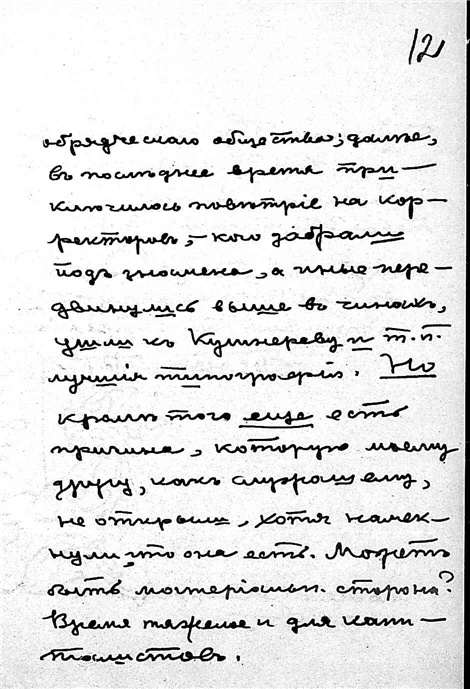 12
обрядческаго общества; далѣе,
въ послѣднее время при—
ключилось повѣтріе на кор—
ректоровъ,— кого забрали
подъ знамена, а иные пере—
двинулись выше въ чинахъ,
ушли къ Кушнереву и т.п.
лучшія типографіи. Но
кромѣ того еще есть
причина, которую моему
другу, какъ служащему,
не открыли, хотя намек—
нули, что она есть. Можетъ
быть матеріальн. сторона?
Время тяжелое и для капи—
талистовъ.